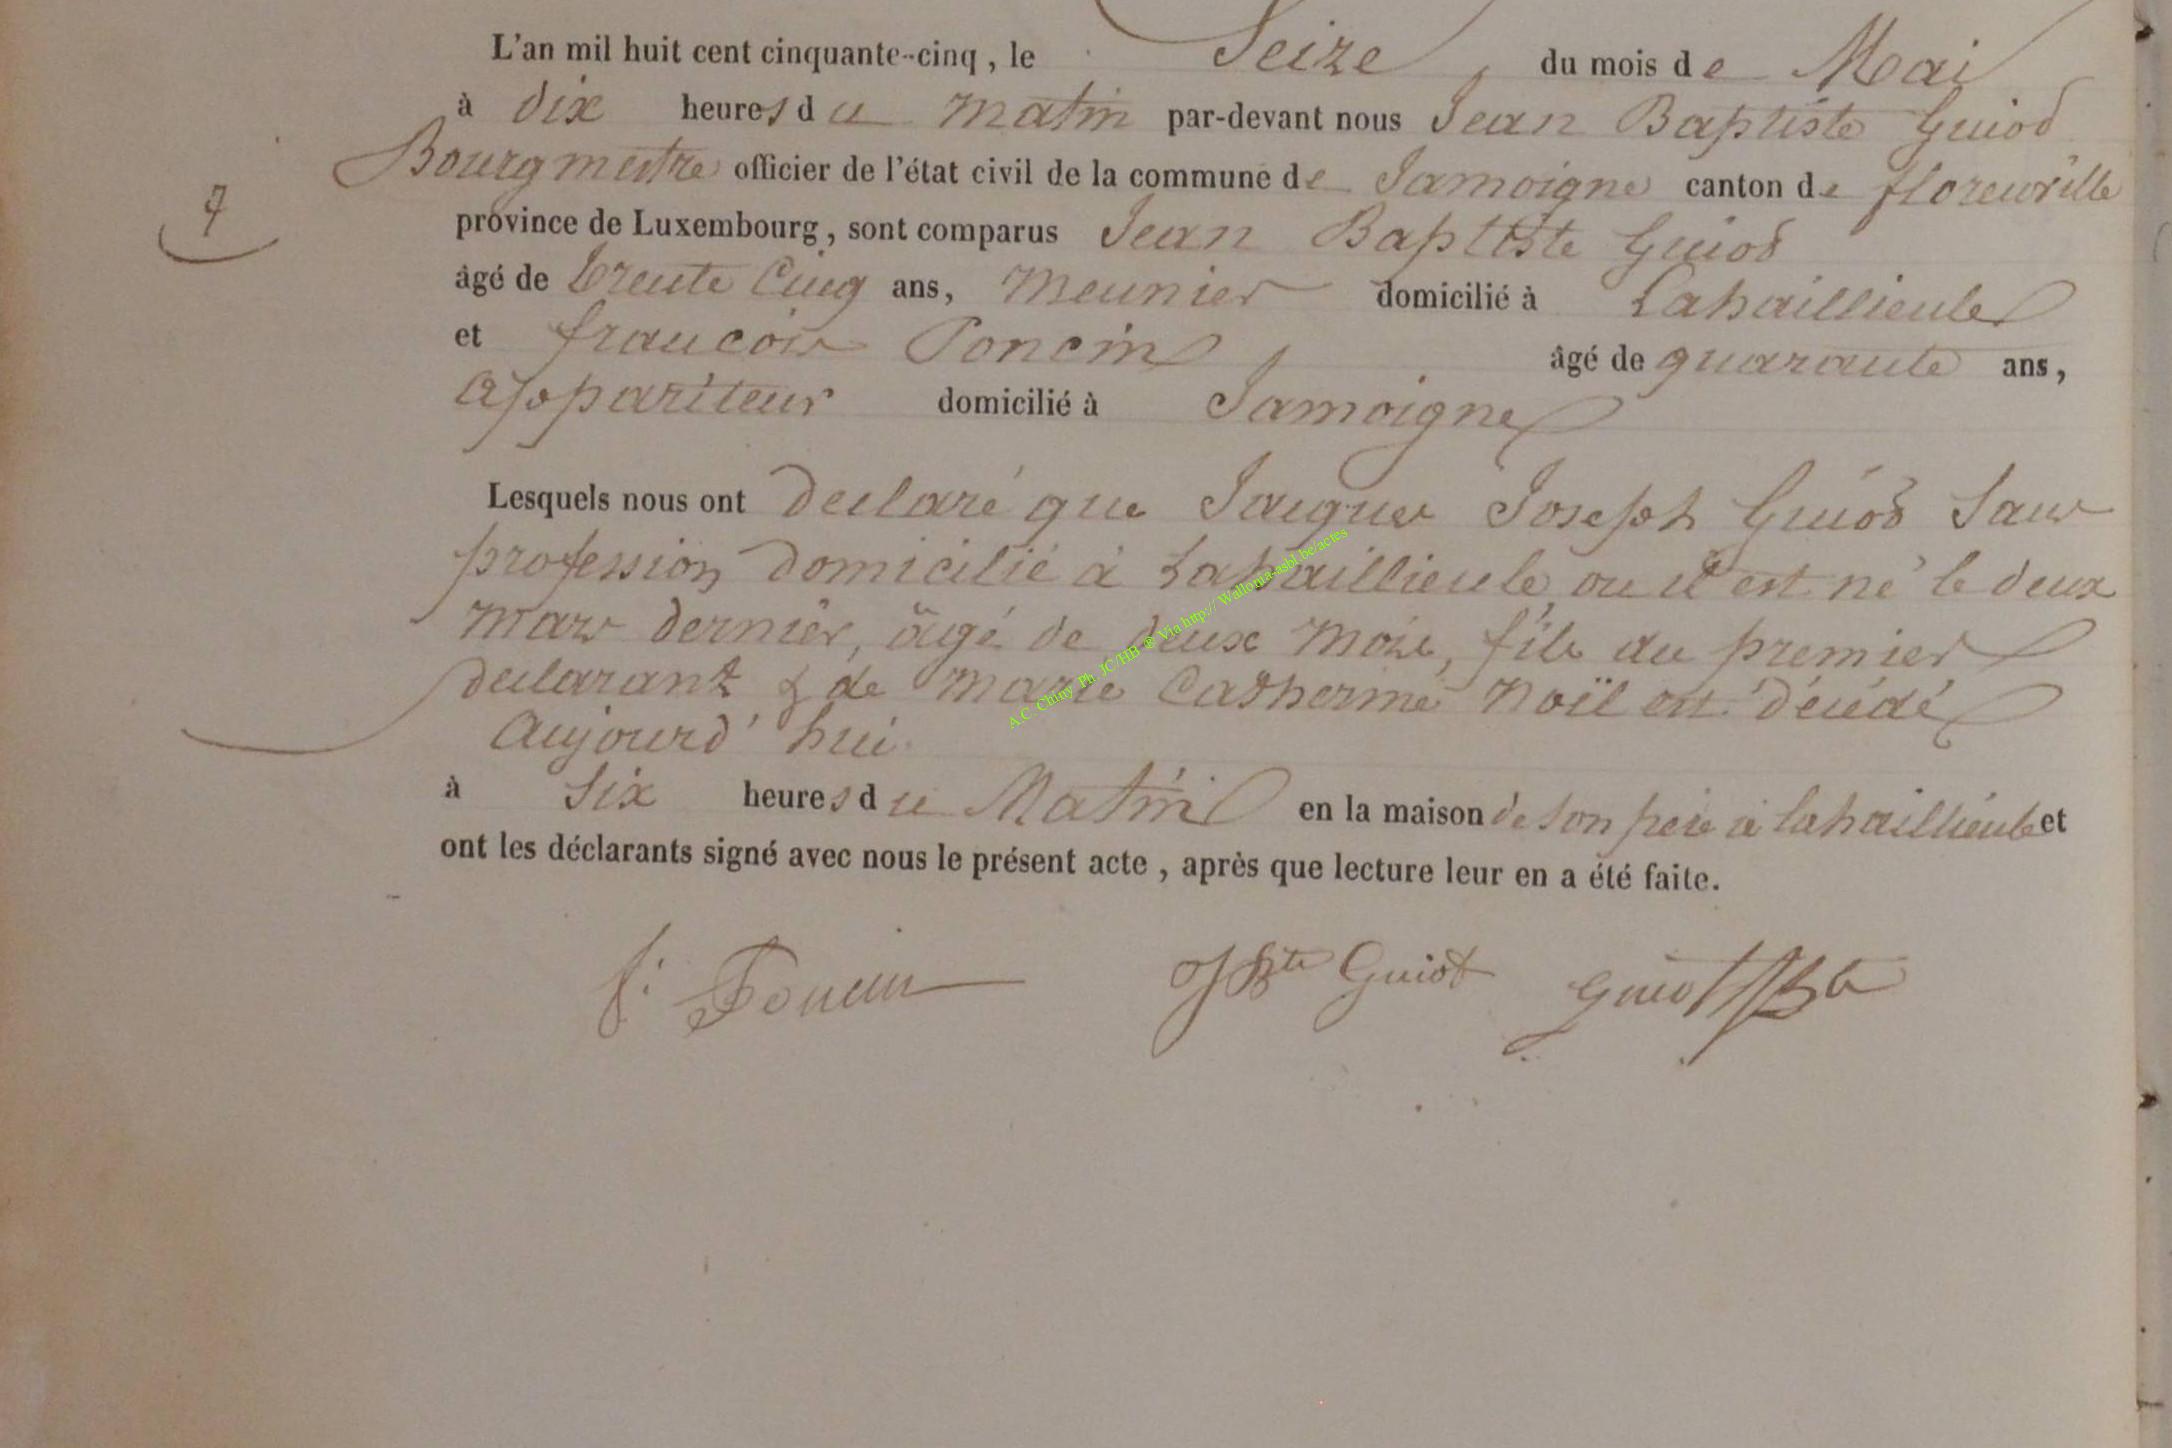 L'an mil huit cent cinquante-cinq, le Seize du mois de Mai
à dix heures du matin par-devant nous Jean Baptiste Guiod
Bourgmestre officier de l'état civil de la commune de Jamoigne canton de florenville
7
province de Luxembourg, sont comparus Jean Baptiste Guiod
âgé de trente Cinq ans, Meunier domicilié à Lahaillieule
et francois Poncin âgé de quarante ans,
appariteur domicilié à Jamoigne
Lesquels nous ont declaré que Jacques Joseph Guiod Sans
profession domicilié à Lahaillieule ou il est né le deux
mars dernier, âgé de deux mois, fils du premier
declarant & de Marie Catherine Noël est décédé
aujourd'hui
à Six heures du Matin en la maison de son père à lahaillieule et
ont les déclarants signé avec nous le présent acte, après que lecture leur en a été faite.
f. Poncin JBte Guiot Guiot JBte
A.C. Chiny Ph. JC/HB ® Via http:// Wallonia-asbl.be/actes